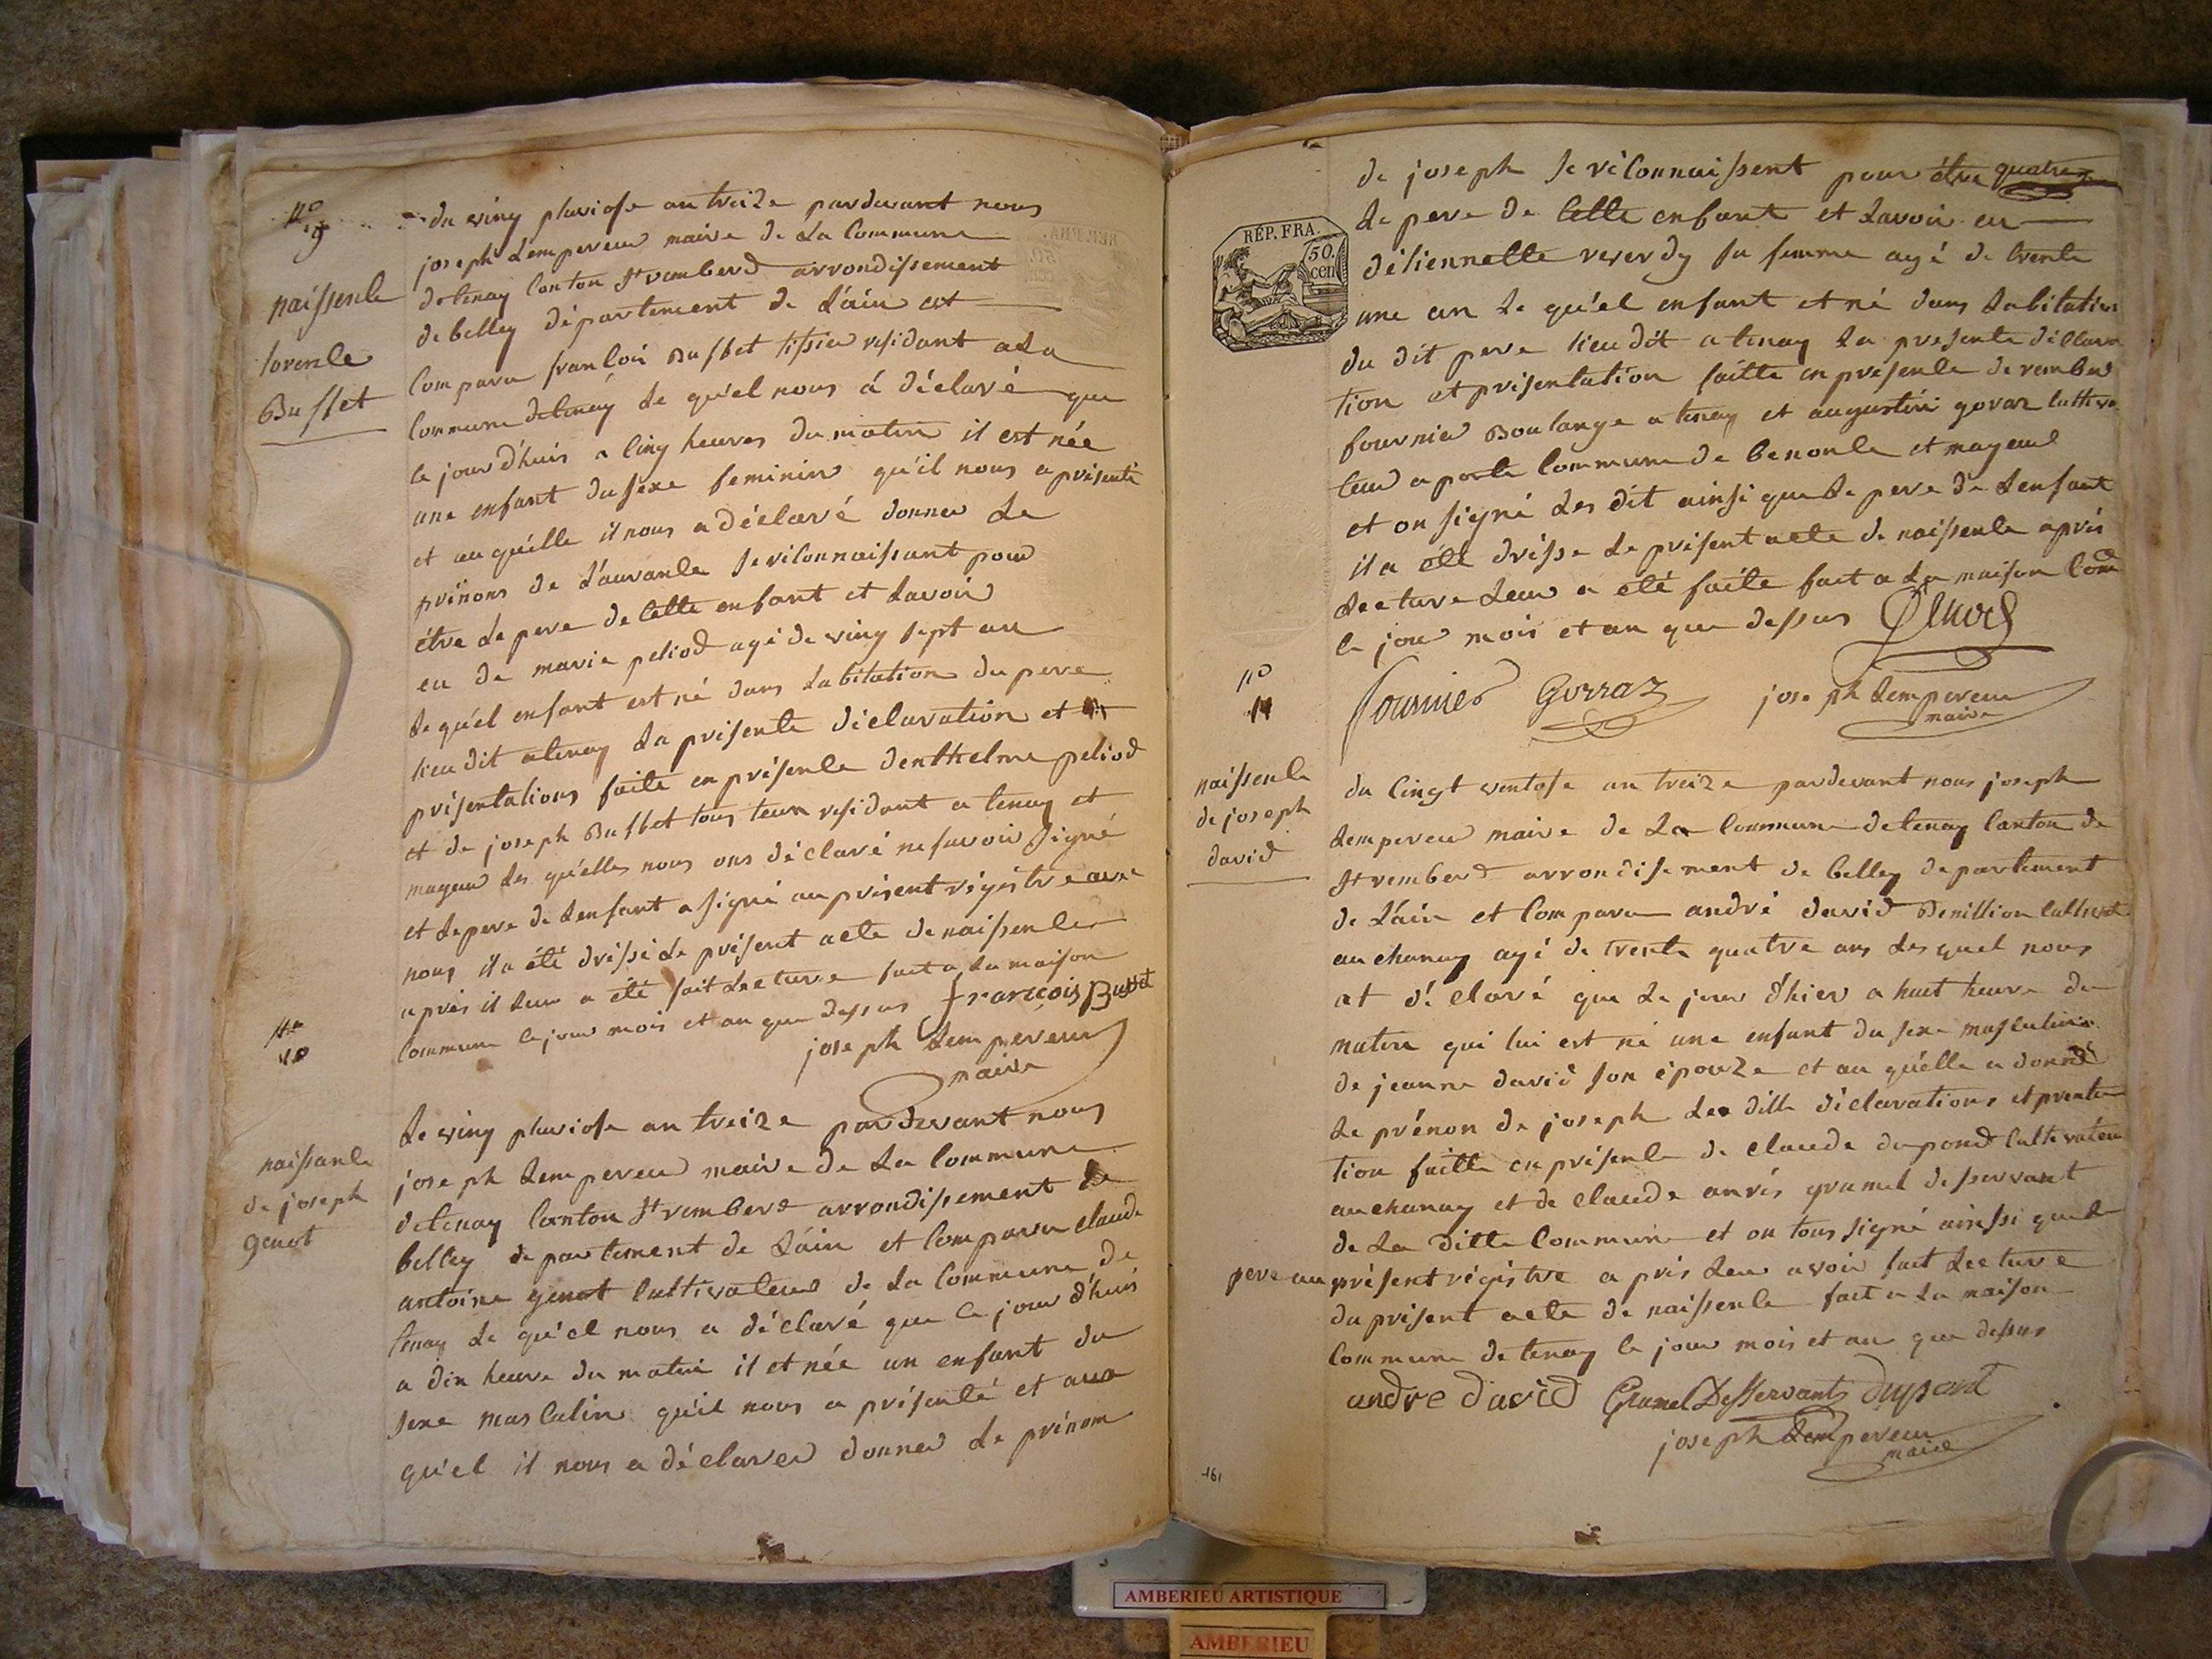 n° 9
naissence
lorence
Buffet
du ving pluviose an treize pardevant nous
joseph Lempereur maire de La Commune
detenay Canton St remberd arrondissement
de belley département de L'ain est
Comparu françoi Buffet tissier residant a La
Commune detenay Le qu'el nous á déclaré que
ce jour d'huis a cinq heures du matin il est née
une enfant du sexe feminin qu'il nous a présenté
et au quélle il nous a déclaré donner Le
prénons de L'aurance se reconnaissant pour
étre Le pere de Cette enfant et Lavoir
eu de marie peliod agé de ving sept an
Le qu'el enfant est né dans Labitation du pere
lieu dit atenay La présente déclaration et
présentations faite en présence denthelme peliod
et de joseph Buffet tous teux residant a tenay et
mageur Les qu'elles nous ons déclaré ne savoir signé
et Le pere de Lenfant a signé au présent régistre avec
nous il a été dréssé Le présent acte de naissence
après il Leur a été fait Lecture fait a La maison
Commune le jour mois et an que dessus françois Buffet
joseph Lempereur
maire
n°
10
naissance
de joseph
genot
Le ving pluviose an treize pardevant nous
joseph Lempereur maire de La Commune
detenay Canton St remberd arrondissement de
belley departement de L'ain et Comparu claude
antoine genot Cultivateur de La Commune de
tenay Le qu'el nous a déclaré que ce jour d'huis
a dix heure du matin il et née un enfant du
sexe masculin qu'il nous a présenté et au
qu'el il nous a déclarer donner Le prénom
RÉP. FRA.
50. cen
de joseph se réconnaissent pour étre
Le pere de Cette enfant et Lavoir eu
détiennette reverdy sa femme agé de trente
une an Le qu'el enfant et né dans Labitation
du dit pere lieu dit a tenay La presente déclara
tion et présentation faitte en présence de rember
fournier Boulange a tenay et augustin goraz Cultiva
teur a porte Commune de benonce et mageur
et on signé Les dit ainsi que Le pere de Lenfant
il a été drésse Le présent acte de naissence aprés
Lecture Leur a été faite fait a La maison Com
le jour mois et an que dessus
fournier Gorraz joseph Lempereur
maire
n°
11
naissence
de joseph
david
du Cingt ventose an treize pardevant nous joseph
Lempereur maire de La Commune detenay Canton de
St remberd arrondisement de belley departement
de L'ain et Comparu andré david Cultivat
au chanay agé de trente quatre ans Les quel nous
at déclaré que Le jour d'hier a huit heure du
matin qui lui est né une enfant du sexe masculin
de jeanne david son épouze et au qu'elle a donné
Le prénon de joseph Les ditte déclarations et presenta
tion faitte en présence de claude dupond Cultivateur
au chanay et de claude anrés gramel desservant
de La ditte Commune et on tous signé ainssi que Le
pere au présent régistre a pris Leur avoir fait Lecture
du présent acte de naissence fait a La maison
Commune de tenay le jour mois et an que dessus
andre david Gramel Desservant dupond
joseph Lempereur
maire
161
AMBERIEU ARTISTIQUE
AMBERIEU